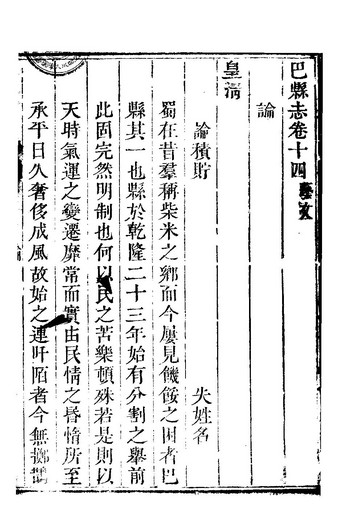 巴縣志卷十四 藝文
論
皇清
論積貯 失姓名
蜀在昔羣稱柴米之鄉而今屢見饑餒之困者巴
縣其一也縣於乾隆二十三年始有分割之舉前
此固完然明制也何以民之苦樂頓殊若是則以
天時氣運之變遷靡常而實由民情之昏惰所至
承平日久奢侈成風故始之連阡陌者今無擲